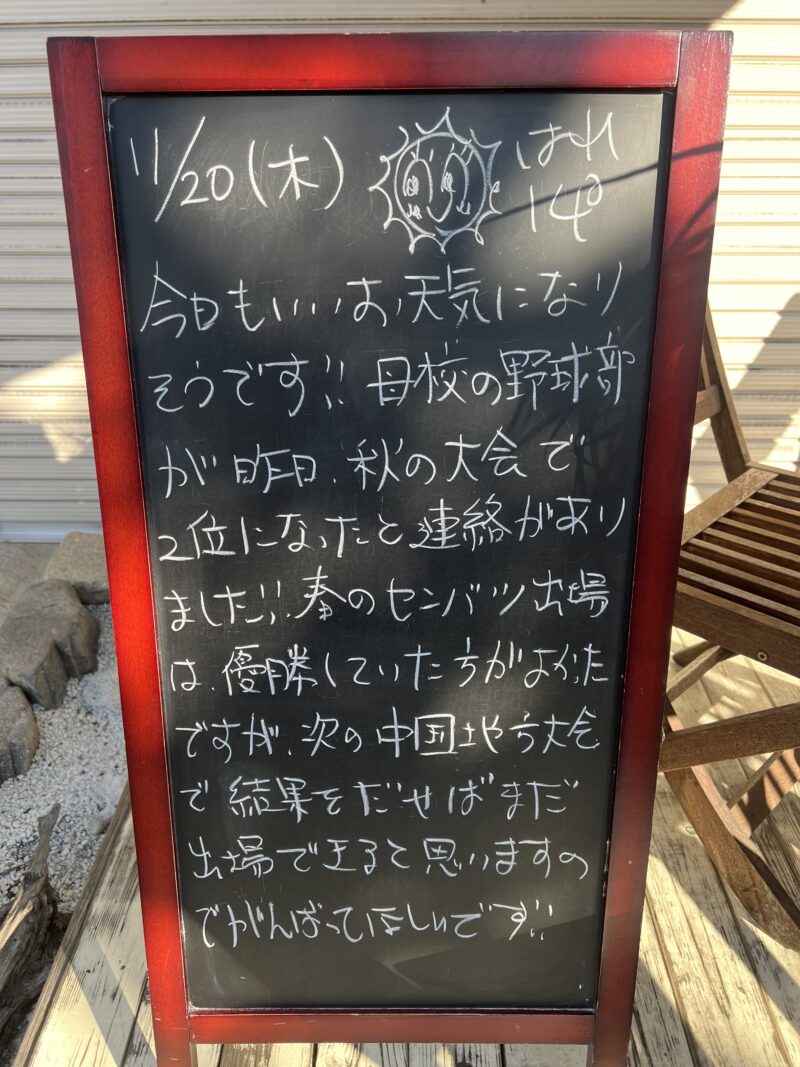 11/20(木) はれ
14°
今日もいいお天気になり
そうです!! 母校の野球部
が昨日、秋の大会で
2位になったと連絡があり
ました!!. 春のセンバツ出場
は、優勝していた方がよかった
ですが、次の中国地方大会
で結果をだせばまだ
出場できると思いますの
でがんばってほしいです!!